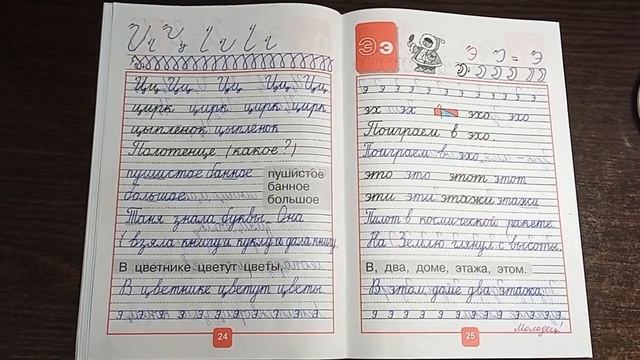 Цц Цц Цц Цц Цц
цирк цирк цирк цирк
цыплёнок цыплёнок
Полотенце (какое?)
пушистое банное
большое
пушистое
банное
большое
Таня знала буквы. Она
взяла книгу и куклу и дала книгу
В цветнике цветут цветы.
В цветнике цветут цветы.
э э э э э э э э э
24
Ээ
Э Э = Э
э э э э э э э э э э э
эх эх эхо эхо
Поиграем в эхо.
Поиграем в эхо.
это это этот этот
эти эти этажи этажи
Пилот в космической ракете
На Землю глянул с высоты.
В, два, доме, этажа, этом.
В этом доме два этажа.
э э э э э э э э э э э э
25
Молодец!